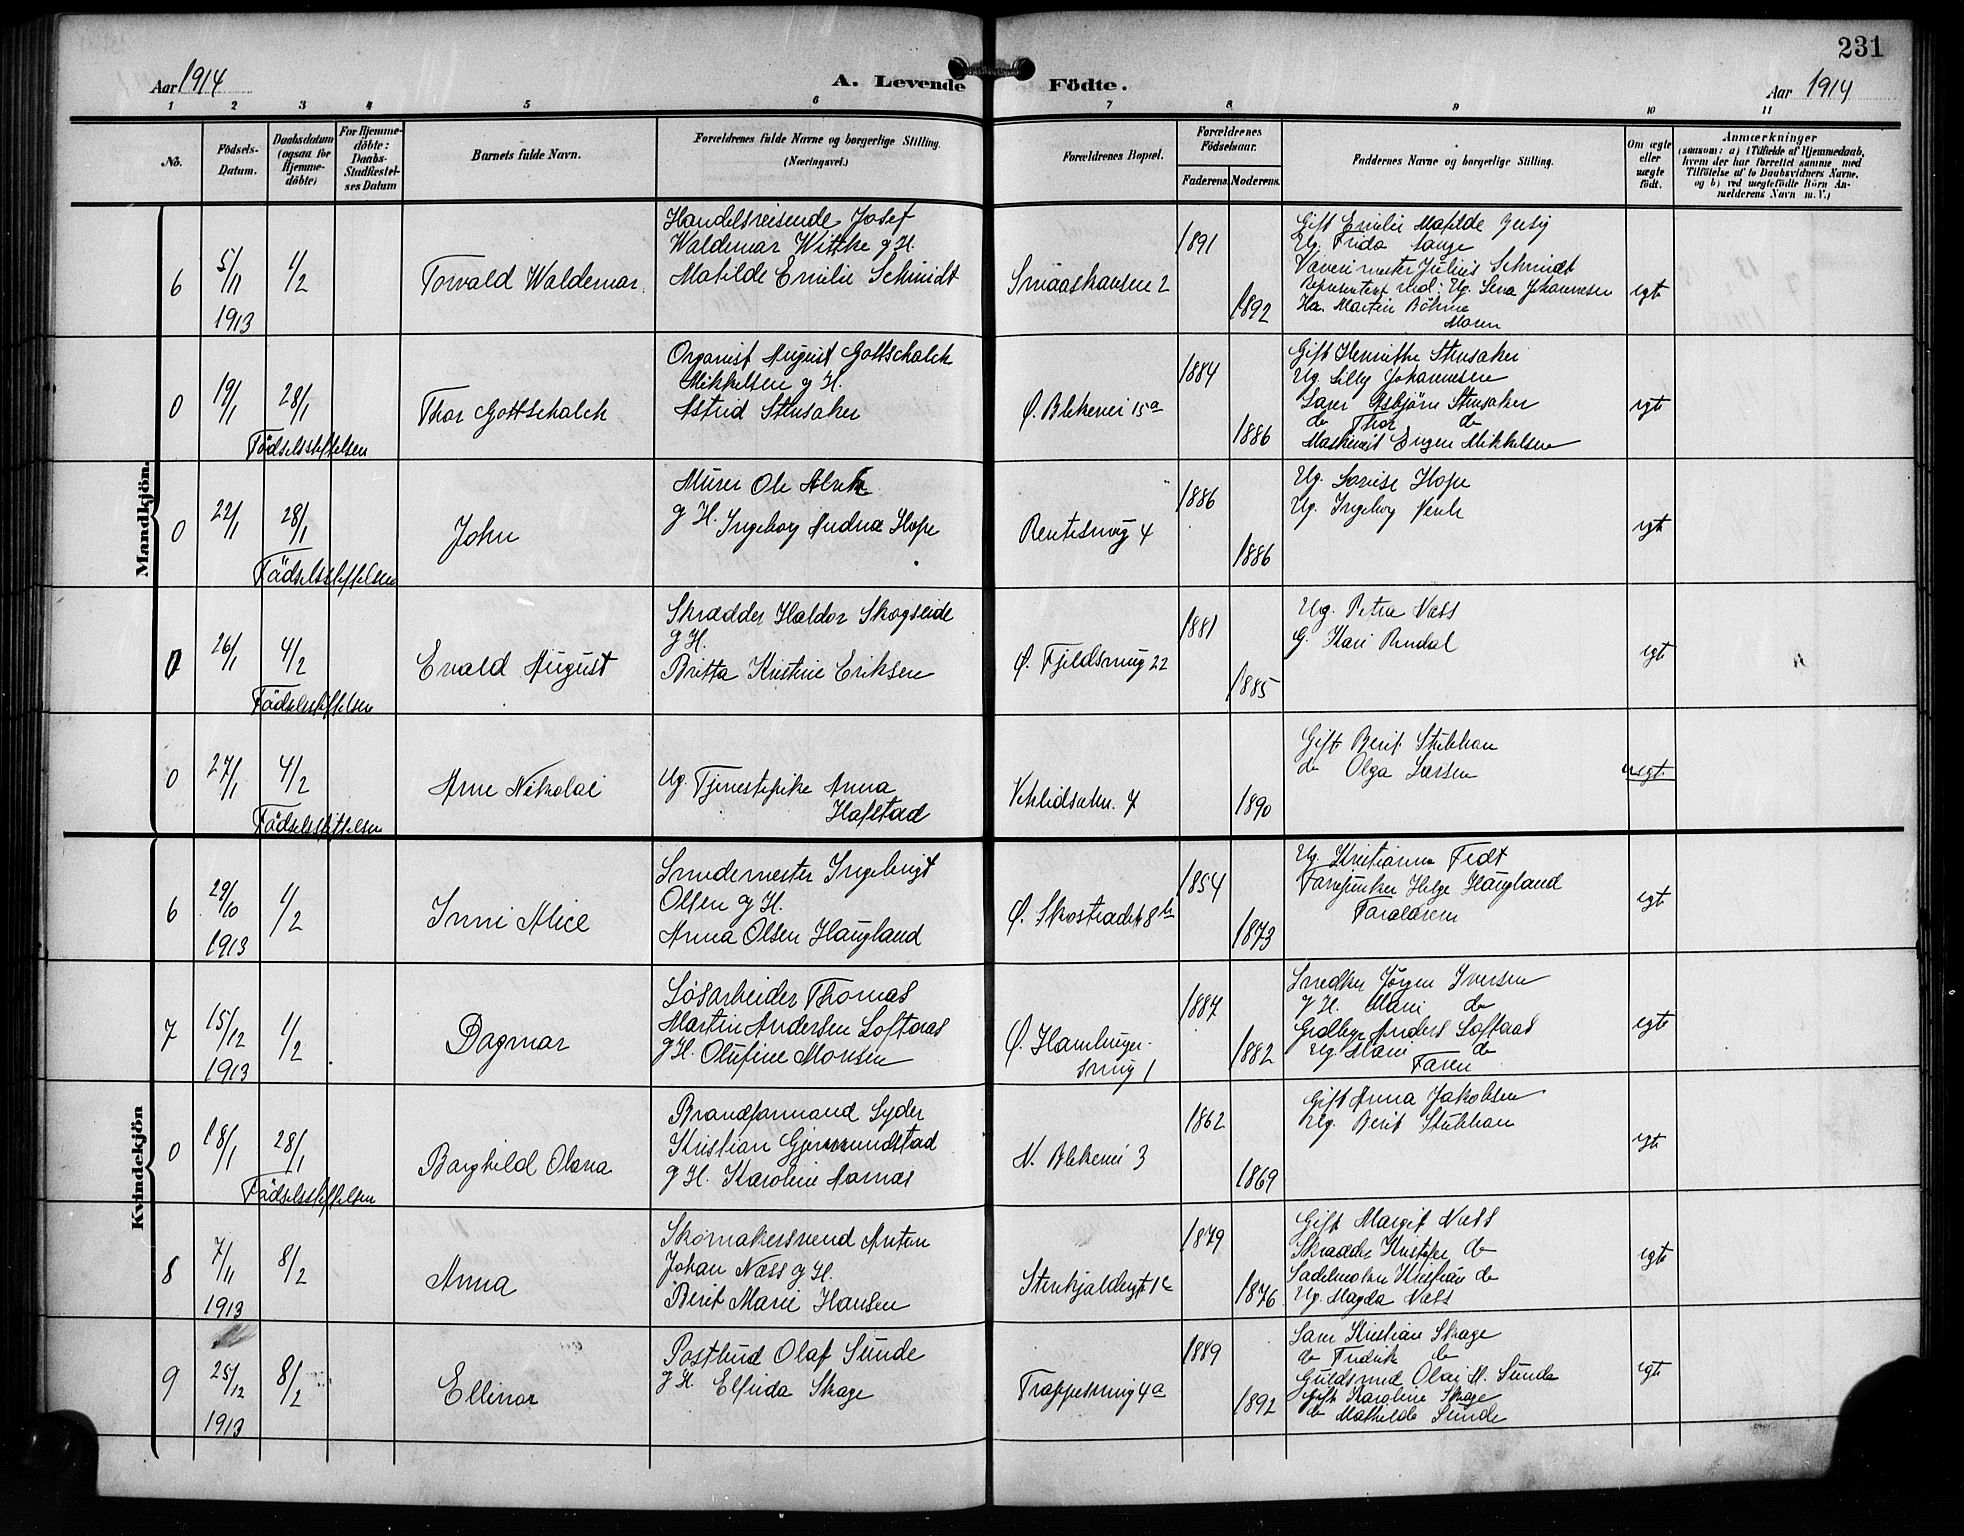 231
Aar 1914
A. Levende Födte.
Aar 1914
1 2 3 4 5 6 7 8 9 10 11
No.
Födsels-Datum.
Daabsdatum (ogsaa for Hjemme-döbte)
For Hjemme-döbte: Daabs-Stadfæstel-ses Datum
Barnets fulde Navn.
Forældrenes fulde Navne og borgerlige Stilling. (Næringsvei.)
Forældrenes Bopæl.
Forældrenes Födselsaar.
Faderens. Moderens.
Faddernes Navne og borgerlige Stilling.
Om ægte eller uægte födt.
Anmærkninger
(saasom: a) i Tilfælde af Hjemmedaab,
hvem der har forrettet samme med
Tilföielse af to Daabsvidners Navne.
og b) ved uægtefödte Börn An-
melderens Navn m. V.)
Mandkjön.
6
5/11 1913
1/2
Torvald Waldemar
Handelsreisende Josef
Waldemar Wittke g H.
Matilde Emilie Schmidt
Smaaskansen 2
1891
1892
Gift Emilie Matilde
Ug. Frida Lange
Julius Schmidt
Ug. Lena Johannesen
Martin Böhme
Moren
egte
0
19/1
28/1
Födselsstiftelsen
Thor Gottschalck
Organist August Gottschalck
Mikkelsen g H.
Astrid Stensaker
Ø. Blekevei 15a
1884
1886
Gift Henriette Stensaker
Ug. Lilly Johannesen
Asbjörn Stensaker
do Thor do
Maskinist Eugen Mikkelsen
egte
0
22/1
28/1
Födselsstiftelsen
John
Murer Ole
g H. Ingeborg Andrea Hope
Rentesmug 4
1886
1886
Ug. Lovise Hope
Ug. Ingeborg
egte
0
26/1
4/2
Födselsstiftelsen
Evald August
Skrædder Haldor Skogseide
g H.
Britta Kristine Eriksen
Ø. Fjeldsmug 22
1881
1885
Ug. Petra Næss
G. Kari Rendal
egte
0
27/1
4/2
Födselsstiftelsen
Arne Nikolai
Ug Tjenestepike Anna
Hafstad
7
1890
Gift Berit Stubhau
do Olga Larsen
uegte
Kvindekjön
6
29/10 1913
1/2
Inni Alice
Smedemester Ingebrigt
Olsen g H.
Anna Olsen Haugland
Ø. Skostrædet 8b
1854
1873
Ug Kristianna Fedt
Farvejunker Helge Haugland
Forældrene
egte
7
15/12 1913
1/2
Dagmar
Løsarbeider Thomas
Martin Andersen Loftaas
g H. Olufine Monsen
Ø. Hamburger-
smug 1
1887
1882
Snedker Jörgen Iversen
g H. Marie do
Anders Loftaas
Ug Marie do
Faren
egte
0
18/1
28/1
Födselsstiftelsen
Borghild Olava
Brandformand Syder
Kristian Gjermundstad
g H. Karoline Aarnæs
N. Blekevei 3
1862
1869
Gift Anna Jakobsen
Ug. Berit Stubhau
egte
8
7/11 1913
8/2
Anna
Skomakersvend Anton
Johan Næss g H.
Berit Marie Hansen
Stenkjeldergt 1c
1879
1876
Gift Margit Næss
Skrædder Kristofer do
Sadelmaker Kristian do
Ug. Magda Næss
egte
9
25/12 1913
8/2
Ellinor
Postbud Olaf Sunde
g H. Elfrida Skage
Trappesmug 4a
1889
1892
Kristian Skage
do Fredrik do
Guldsmed Olai M. Sunde
Gift Karoline Skage
do Mathilde Sunde
egte